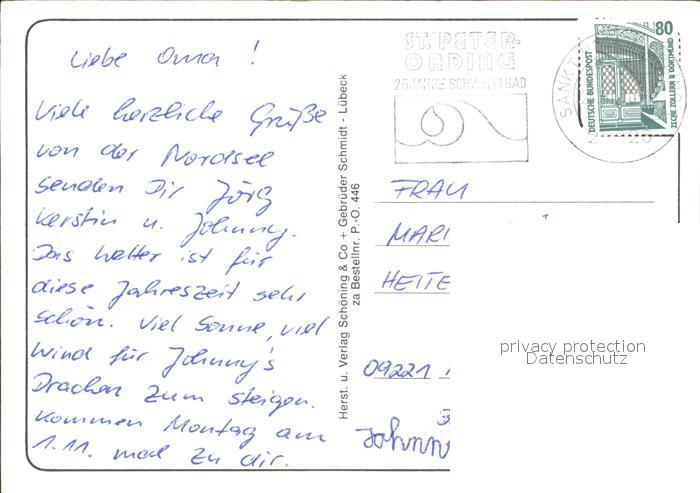 Liebe Oma !
Viele herzliche Grüße
von der Nordsee
senden Dir Jörg
Kerstin u. Johnny.
Das Wetter ist für
diese Jahreszeit sehr
schön. Viel Sonne, viel
Wind für Johnny's
Drachen zum steigen.
Kommen Montag am
1.11. mal zu dir.
Herst. u. Verlag Schöning & Co + Gebrüder Schmidt - Lübeck
za Bestellnr. P.-O. 446
ST. PETER-
ORDING
25 JAHRE SCHWIMMBAD
SANKT
80
DEUTSCHE BUNDESPOST
ZECHE ZOLLERN II DORTMUND
FRAU
MARI
HEITE
09221
Johnn
privacy protection
Datenschutz